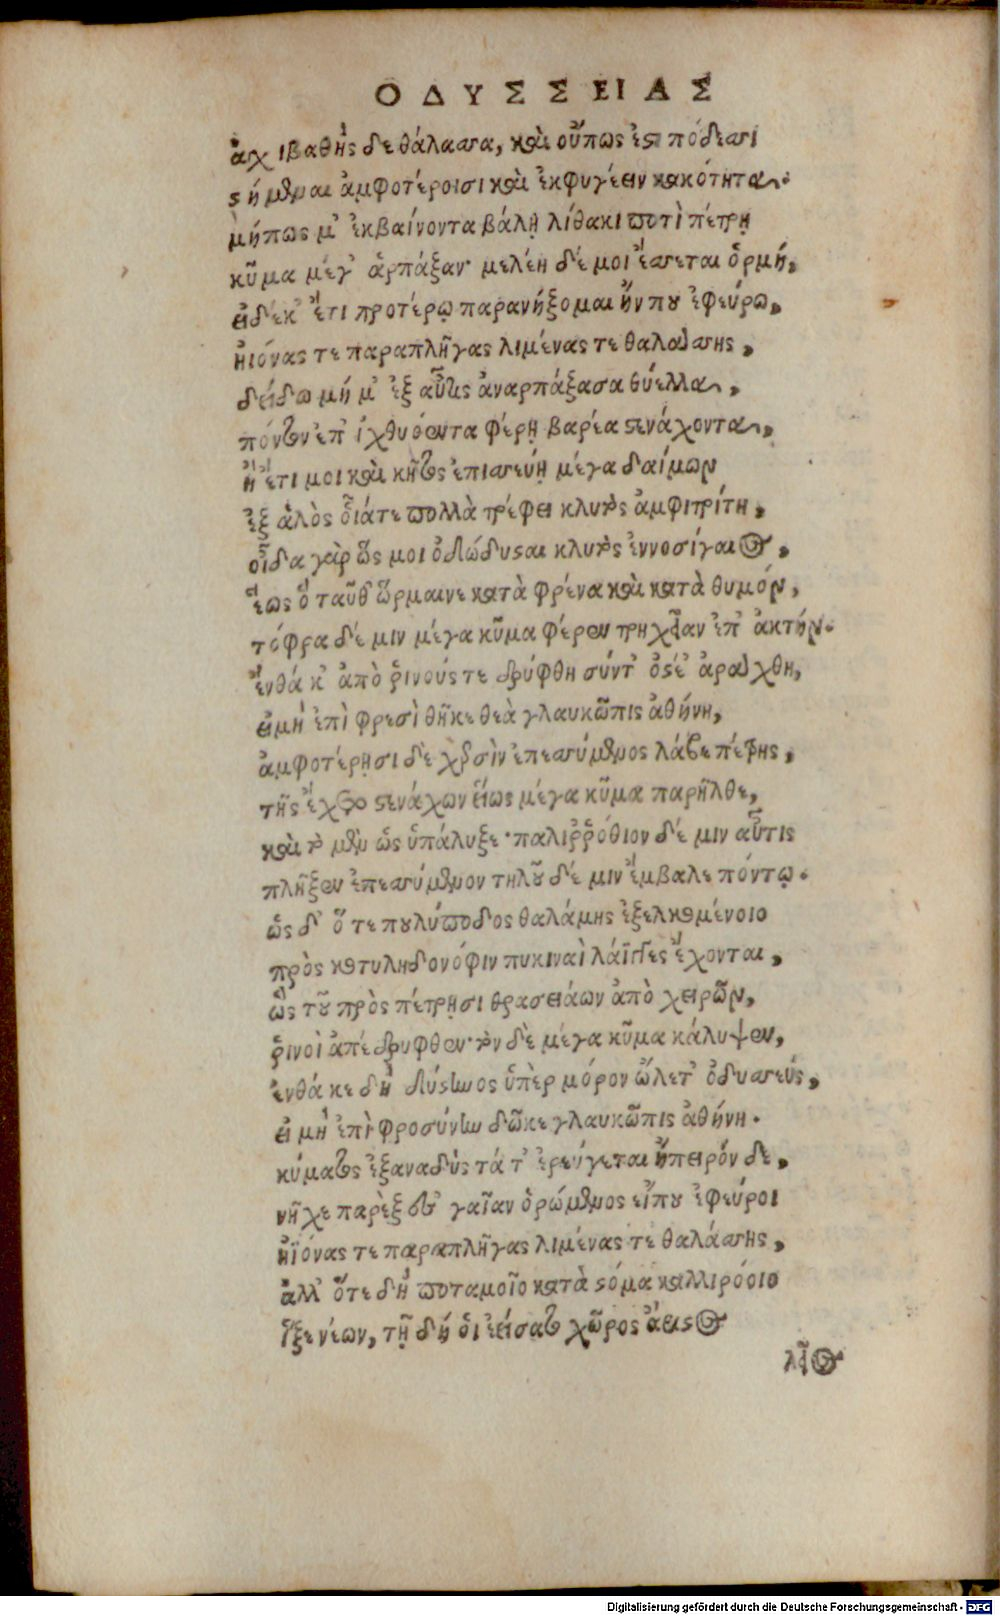 ΟΔΥΣΣΕΙΑΣ
ἀγχιβαθὴς δὲ θάλασσα, καὶ οὔπως ἐστὶ πόδεσσι
στήμεναι ἀμφοτέροισι καὶ ἐκφυγέειν κακότητα.
μήπως μ' ἐκβαίνοντα βάλῃ λίθακι ποτὶ πέτρῃ
κῦμα μέγ' ἁρπάξαν· μελέη δέ μοι ἔσσεται ὁρμή,
εἰ δέ κ' ἔτι προτέρῳ παρανήξομαι ἤν που ἐφεύρω,
ἠιόνας τε παραπλῆγας λιμένας τε θαλάσσης,
δείδω μή μ' ἐξ αὖτις ἀναρπάξασα θύελλα,
πόντον ἐπ' ἰχθυόεντα φέρῃ βαρέα στενάχοντα,
ἠὲ ἔτι μοι καὶ κῆτος ἐπισσεύῃ μέγα δαίμων
ἐξ ἁλὸς οἷά τε πολλὰ τρέφει κλυτὸς ἀμφιτρίτη,
οἶδα γὰρ ὥς μοι ὀδώδυσαι κλυτὸς ἐννοσίγαιος,
ἕως ὃ ταῦθ' ὥρμαινε κατὰ φρένα καὶ κατὰ θυμόν,
τόφρα δέ μιν μέγα κῦμα φέρεν τρηχεῖαν ἐπ' ἀκτήν.
ἔνθά κ' ἀπὸ ῥινούς τε δρύφθη σύν τ' ὀστέ' ἀράχθη,
εἰ μὴ ἐπὶ φρεσὶ θῆκε θεὰ γλαυκῶπις ἀθήνη,
ἀμφοτέρῃσι δὲ χερσὶν ἐπεσσύμενος λάβε πέτρης,
τῆς ἔχετο στενάχων εἵως μέγα κῦμα παρῆλθε,
καὶ τὸ μὲν ὣς ὑπάλυξε· παλιῤῥόθιον δέ μιν αὖτις
πλῆξεν ἐπεσσύμενον τηλοῦ δέ μιν ἔμβαλε πόντῳ.
ὡς δ' ὅτε πουλύποδος θαλάμης ἐξελκομένοιο
πρὸς κοτυληδονόφιν πυκιναὶ λάϊγγες ἔχονται,
ὣς τοῦ πρὸς πέτρῃσι θρασειάων ἀπὸ χειρῶν,
ῥινοὶ ἀπέδρυφθεν· τὸν δὲ μέγα κῦμα κάλυψεν,
ἔνθά κε δὴ δύστηνος ὑπὲρ μόρον ὤλετ' ὀδυσσεύς,
εἰ μὴ ἐπὶ φροσύνην δῶκε γλαυκῶπις ἀθήνη.
κύματος ἐξαναδὺς τά τ' ἐρεύγεται ἤπειρόν δε,
νῆχε παρὲξ ἐς γαῖαν ὁρώμενος εἴ που ἐφεύροι
ἠϊόνας τε παραπλῆγας λιμένας τε θαλάσσης,
ἀλλ' ὅτε δὴ ποταμοῖο κατὰ στόμα καλλιρόοιο
ἷξε νέων, τῇ δή οἱ ἐείσατο χῶρος ἄριστος
λεῖος